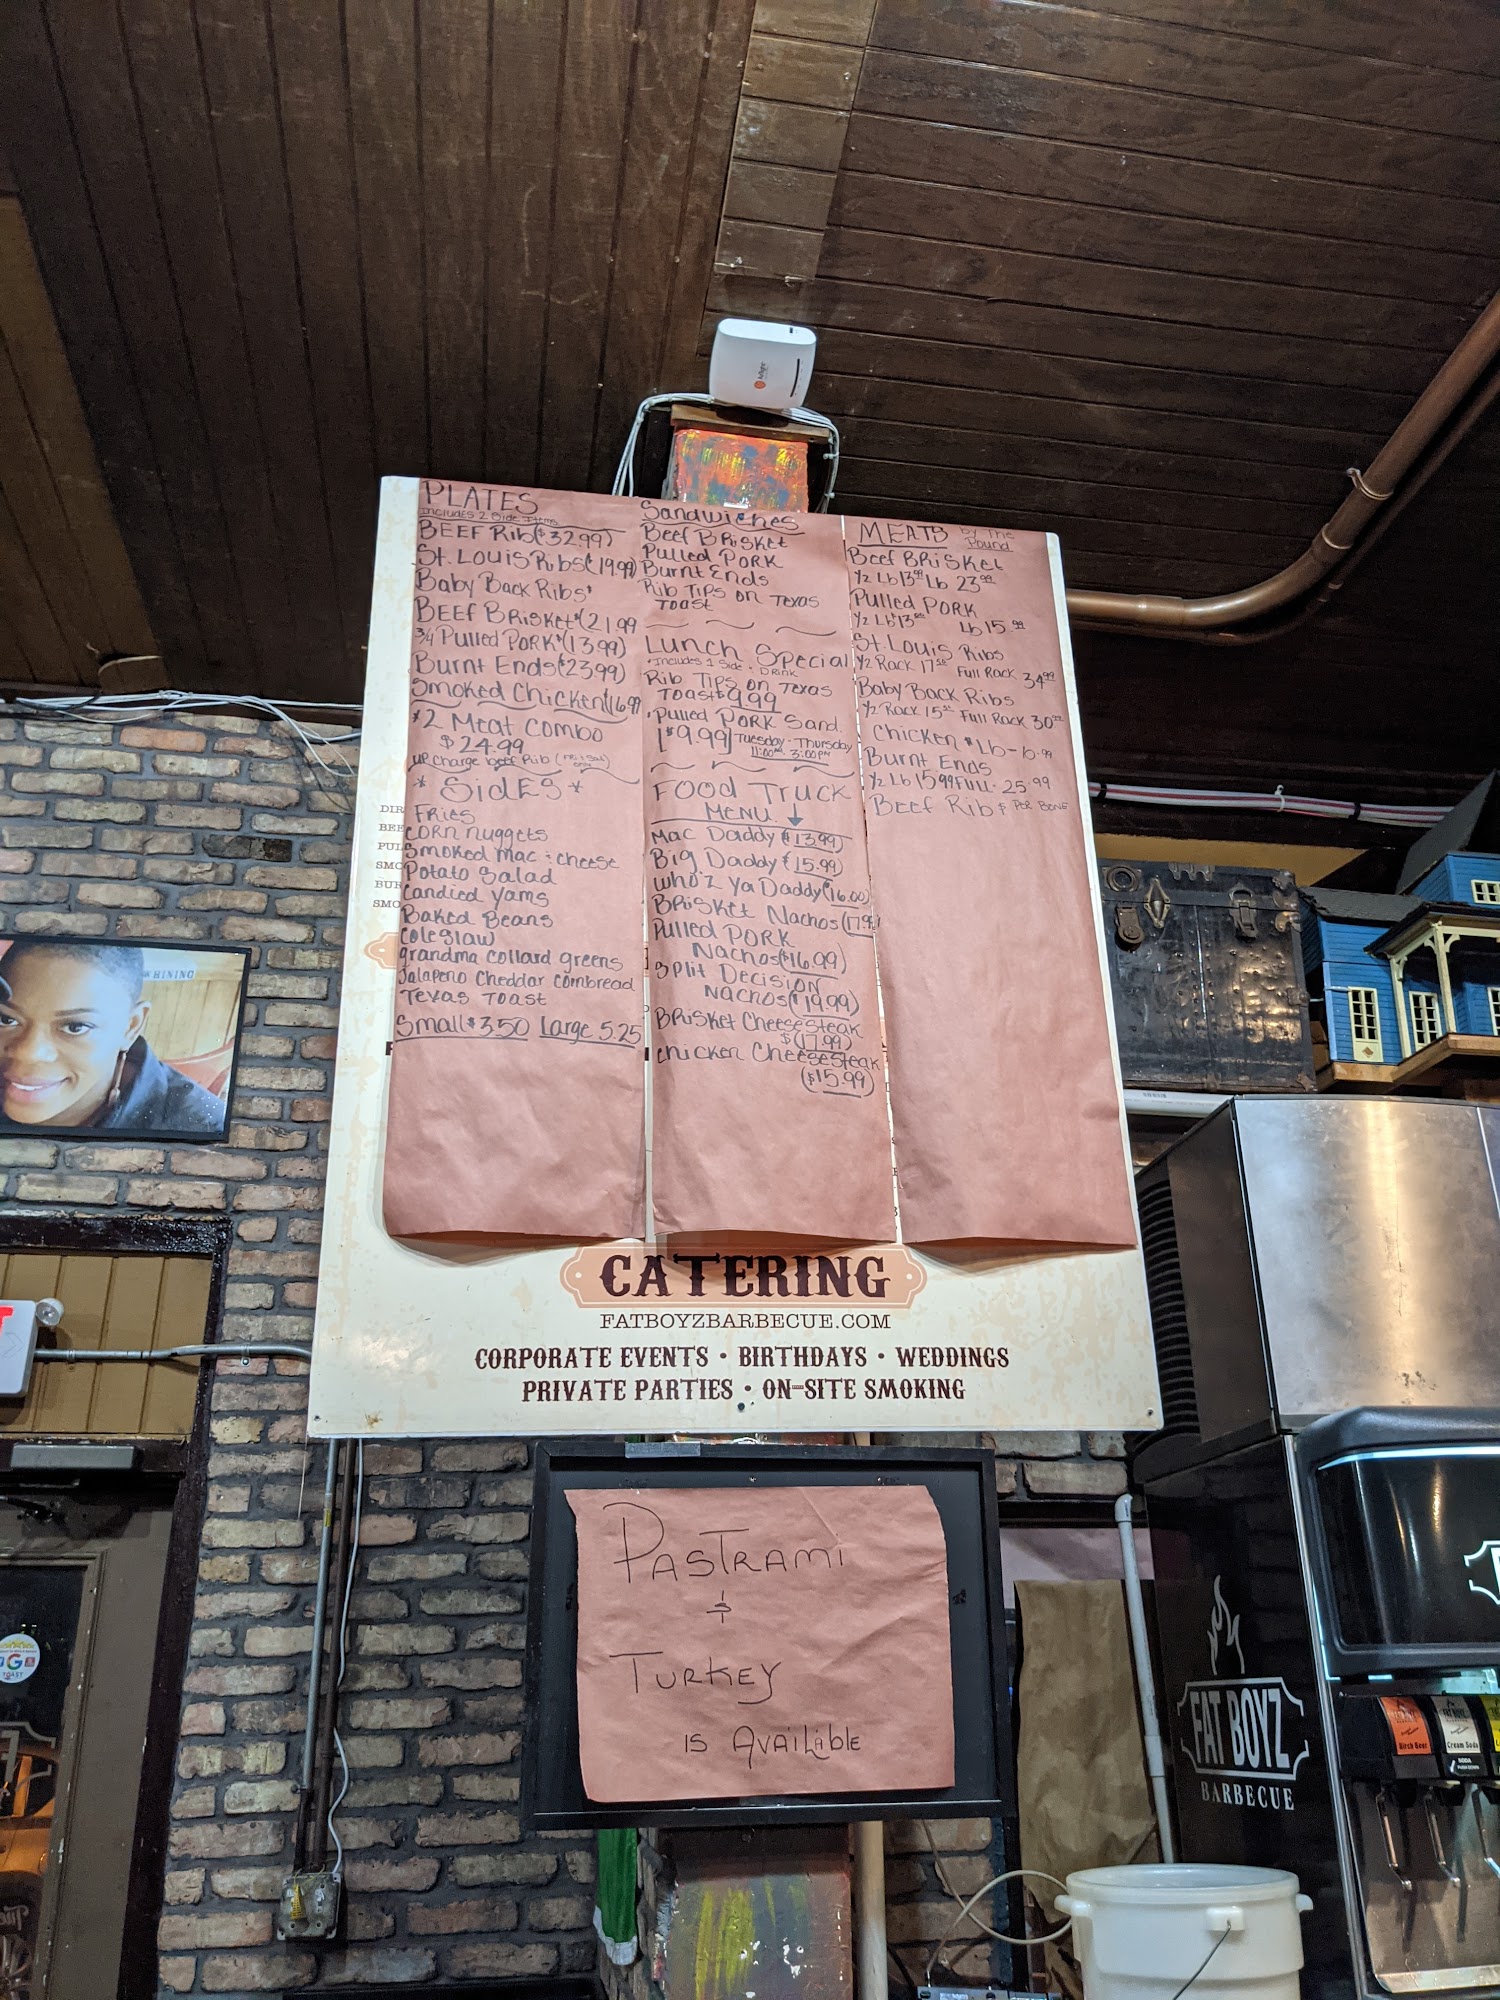 PLATES
Includes 2 Side Items
BEEF Rib ($32.99)
St. Louis Ribs ($19.99)
Baby Back Ribs $
BEEF BRisket $(21.99
3/4 Pulled PORK $(13.99)
Burnt Ends ($23.99)
Smoked Chicken
$2 Meat Combo
$24.99
up Charge beef Rib
* SidES *
Fries
CORN nuggets
Smoked Mac & cheese
Potato Salad
Candied yams
Baked Beans
Coleslaw
Grandma collard greens
Jalapeno Cheddar Cornbread
Texas Toast
Small $3.50 Large 5.25
Sandwiches
Beef BRisket
Pulled PORK
Burnt Ends
Rib Tips on Texas
Toast
Lunch Special
*Includes 1 Side. Drink
Rib Tips on Texas
Toast $9.99
*Pulled PORK Sand.
[$9.99] Tuesday - Thursday
11:00AM 3:00PM
Food Truck
MENU
Mac Daddy ($13.99)
Big Daddy ($15.99)
Who'z Ya Daddy ($16.00)
BRisket Nachos
Pulled PORK
Nachos ($16.99)
Split Decision
Nachos ($19.99)
BRisket Cheesesteak
$(17.99)
Chicken Cheesesteak
($15.99)
MEATS by The
Pound
Beef BRisket
1/2 Lb 13.99 Lb 23.99
Pulled PORK
Lb 15.99
St. Louis Ribs
1/2 Rack Full Rack 34.99
Baby Back Ribs
1/2 Rack Full Rack
Chicken
Burnt Ends
1/2 Lb 15.99 Full - 25.99
Beef Rib $ PER BONE
CATERING
FATBOYZBARBECUE.COM
CORPORATE EVENTS • BIRTHDAYS • WEDDINGS
PRIVATE PARTIES • ON-SITE SMOKING
PASTRAMI
&
TURKEY
IS AVAILABLE
FAT BOYZ
BARBECUE
Birch Beer
Cream Soda